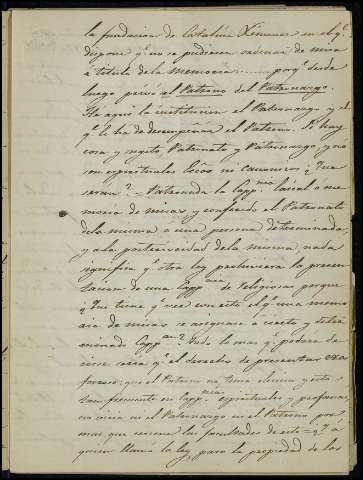 la fundacion de Catalina Ximenez en el q.e
dispone q.e no se pudiesen ordenar de misa
á titulo de la memoria ...... porq.e desde
luego privó el Patrono del Patronazgo.
He aqui la institucion el Patronazgo y el
q.e lo ha de desempeñar el Patrono. Si hay
cosa y sugeto Patronato y Patronazgo, y no
son espirituales licos no canonicos ¿Que
seran? = Patronada la Capp.nia laical o me-
moria de misas y conferido el Patronato
de la misma a una persona determinada,
y a la posteridad de la misma nada
significa q.e otra ley prohiviera la presen-
tacion de una Capp.nia de Religiosas porque
¿Que tiene q.e ver con esto el q.e una memo-
ria de misas se asignase a cierto y deter-
minado Capp.an? Todo lo mas q.e podria de-
cirse seria q.e el derecho de presentar era
forzoso: que el Patrono no tenia eleccion y esto
tan frecuente en Capp.nias espirituales y profanas,
no inicia ni el Patronazgo ni el Patrono por
mas que cercene las facultades de este = ¿Y a
quien llamó la ley para la propiedad de los